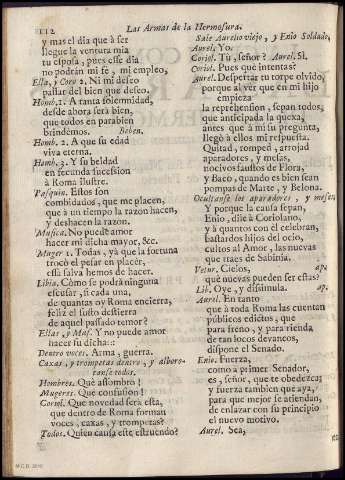 2
Las Armas de la Hermosura.
y mas el dia que à ser
llegue la ventura mia
tu esposa, pues esse dia
no podràn mi fè, mi empleo,
Ella, y Coro 2. Ni mi deseo
passar del bien que deseo.
Homb. 1. A tanta solemnidad,
desde ahora serà bien,
que todos en parabien
brindèmos. Beben.
Homb. 2. A que su edad
viva eterna.
Homb. 3. Y su beldad
en fecunda sucession
à Roma ilustre.
Pasquin. Estos son
combidados, que me placen,
que à un tiempo la razon hacen,
y deshacen la razon.
Musica. No puede amor
hacer mi dicha mayor, &c.
Muger 1. Todas, yà que la fortuna
trocò el pesar en placèr,
essa salva hemos de hacer.
Libia. Còmo se podrà ninguna
escusar, si cada una,
de quantas oy Roma encierra,
feliz el susto destierra
de aquel passado temor?
Ellas, y Mus. Y no puede amor
hacer su dicha:::
Dentro voces. Arma, guerra.
Caxas, y trompetas dentro, y alboro-
tanse todos.
Hombres. Què assombro!
Mugeres. Què confusion!
Coriol. Què novedad serà esta,
que dentro de Roma forman
voces, caxas, y trompetas?
Todos. Quien causa este estruendo?
Sale Aurelio viejo, y Enio Soldado,
Aurel. Yo.
Coriol. Tu, señor? Aurel. Sì.
Coriol. Pues què intentas?
Aurel. Despertar tu torpe olvido,
porque al vèr que en mi hijo
empieza
la reprehension, sepan todos,
que anticipada la quexa,
antes que à mi su pregunta,
llegò à ellos mi respuesta.
Quitad, romped, arrojad
aparadores, y mesas,
nocivos faustos de Flora,
y Baco, quando es bien sean
pompas de Marte, y Belona.
Ocultanse los aparadores, y mesas.
Y porque la causa sepan,
Enio, dile à Coriolano,
y à quantos con èl celebran,
bastardos hijos del ocio,
cultos al Amor, las nuevas
que traes de Sabinia.
Vetur. Cielos, ap.
què nuevas pueden ser estas?
Lib. Oye, y dissimula. ap.
Aurel. En tanto
que à toda Roma las cuentan
publicos edictos, que
para freno, y para rienda
de tan locos devanèos,
dispone el Senado.
Enio. Fuerza,
como à primer Senador,
es, señor, que te obedezca;
y fuerza tambien que aya,
para que mejor se atiendan,
de enlazar con su principio
el nuevo motivo.
Aurel. Sea,